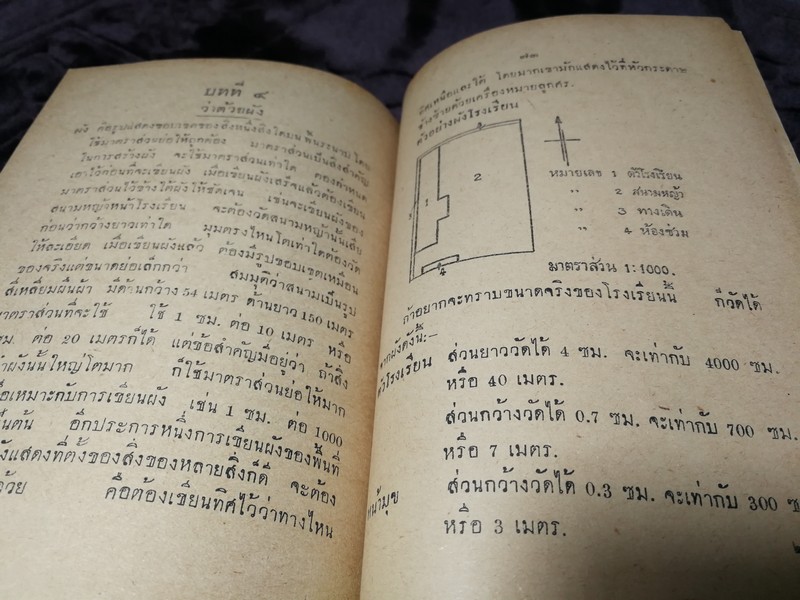 บทที่ ๔
ว่าด้วยผัง
ผัง คือรูปแสดงขอบเขตของสิ่งหนึ่งสิ่งใดบนพื้นระนาบ โดย
ใช้มาตราส่วนย่อให้ถูกต้อง มาตราส่วนเป็นสิ่งสำคัญ
ในการสร้างผัง จะใช้มาตราส่วนเท่าใด ต้องกำหนด
เอาไว้ก่อนที่จะเขียนผัง เมื่อเขียนผังเสร็จแล้วต้องเขียน
มาตราส่วนไว้ข้างใต้ผังให้ชัดเจน เช่นจะเขียนผังของ
สนามหญ้าหน้าโรงเรียน จะต้องวัดสนามหญ้านั้นเสีย
ก่อนว่ากว้างยาวเท่าใด มุมตรงไหนโตเท่าใดต้องวัด
ให้ละเอียด เมื่อเขียนผังแล้ว ต้องมีรูปขอบเขตเหมือน
ของจริงแต่ขนาดย่อเล็กกว่า สมมุติว่าสนามเป็นรูป
สี่เหลี่ยมผืนผ้า มีด้านกว้าง 54 เมตร ด้านยาว 150 เมตร
มาตราส่วนที่จะใช้ ใช้ 1 ซม. ต่อ 10 เมตร หรือ
ซม. ต่อ 20 เมตรก็ได้ แต่ข้อสำคัญมีอยู่ว่า ถ้าสิ่ง
ทำผังนั้นใหญ่โตมาก ก็ใช้มาตราส่วนย่อให้มาก
เหมาะกับการเขียนผัง เช่น 1 ซม. ต่อ 1000
เป็นต้น อีกประการหนึ่งการเขียนผังของพื้นที่
แสดงที่ตั้งของสิ่งของหลายสิ่งก็ดี จะต้อง
ด้วย คือต้องเขียนทิศไว้ว่าทางไหน
๗๓
ทิศเหนือและใต้ โดยมากเขามักแสดงไว้ที่หัวกระดาษ
ข้างซ้ายด้วยเครื่องหมายลูกศร.
ตัวอย่างผังโรงเรียน
3
2
1
3
4
หมายเลข 1 ตัวโรงเรียน
,, 2 สนามหญ้า
,, 3 ทางเดิน
,, 4 ห้องส้วม
มาตราส่วน 1:1000.
ถ้าอยากจะทราบขนาดจริงของโรงเรียนนี้ ก็วัดได้
จากผังดังนี้:—
ตัวโรงเรียน ส่วนยาววัดได้ 4 ซม. จะเท่ากับ 4000 ซม.
หรือ 40 เมตร.
ส่วนกว้างวัดได้ 0.7 ซม. จะเท่ากับ 700 ซม.
หรือ 7 เมตร.
หน้ามุข ส่วนกว้างวัดได้ 0.3 ซม. จะเท่ากับ 300 ซ
หรือ 3 เมตร.